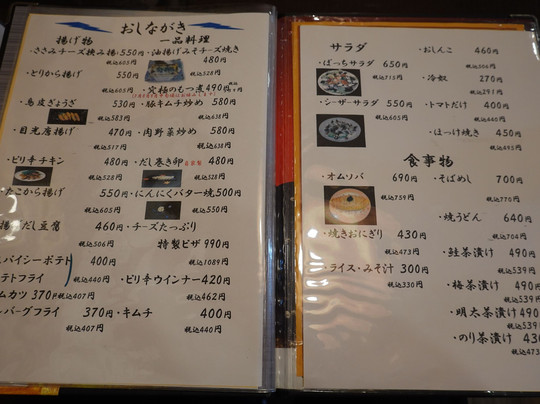 おしながき
揚げ物
一品料理
・ささみチーズ挟み揚 550円
税込605円
・とりから揚げ 550円
税込605円
・鳥皮ぎょうざ 530円
税込583円
・目光唐揚げ 470円
税込517円
・ピリ辛チキン 480円
税込528円
たこから揚げ 550円
税込605円
揚げだし豆腐 460円
税込506円
スパイシーポテト 400円
税込440円
ポテトフライ
税込440円
ハムカツ 370円 税込407円
ハンバーグフライ 370円
税込407円
・油揚げみそチーズ焼き
480円
税込528円
・究極のもつ煮 490円
・豚キムチ炒め 580円
税込638円
・肉野菜炒め 580円
税込638円
・だし巻き卵 480円
税込528円
・にんにくバター焼 500円
税込550円
・チーズたっぷり
特製ピザ 990円
税込1089円
・ピリ辛ウインナー 420円
税込462円
・キムチ 400円
税込440円
サラダ
・ばっちサラダ 650円
税込715円
・シーザーサラダ 550円
税込605円
・おしんこ 460円
税込506円
・冷奴 270円
税込291円
・トマトだけ 400円
税込440円
・ほっけ焼き 450円
税込495円
食事物
・オムソバ 690円
税込759円
・焼きおにぎり 430円
税込473円
・ライス・みそ汁 300円
税込330円
・そばめし 700円
税込770円
・焼うどん 640円
税込704円
・鮭茶漬け 490円
税込539円
・梅茶漬け 490円
税込539円
・明太茶漬け 490円
税込539円
・のり茶漬け 430円
税込473円